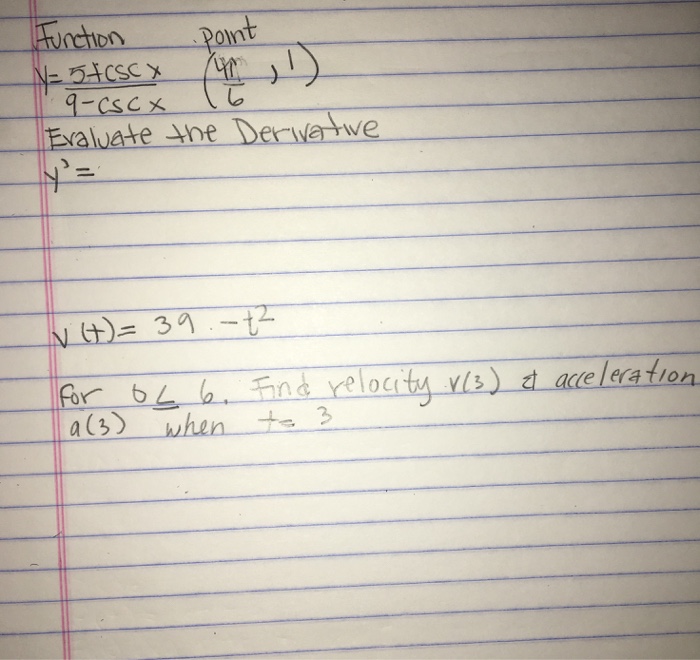 Function point
y= 5+csc x / 9-csc x (4π/6 , 1)
Evaluate the Derivative
y'=
v(t)= 39 -t²
for 0≤ 6. Find velocity v(3) & acceleration
a(3) when t= 3